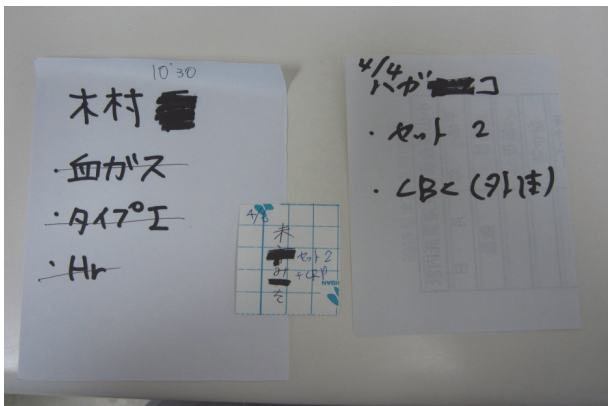 10:30
木村
・血ガス
・タイプエ
・Hr
4/
セット2
+CRP
4/4
ハガ コ
・セット 2
・CBC(外注)